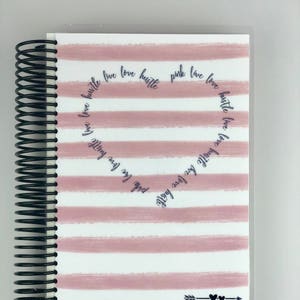 pink live love hustle live love hustle live love hustle
pink live love hustle live love hustle live love hustle